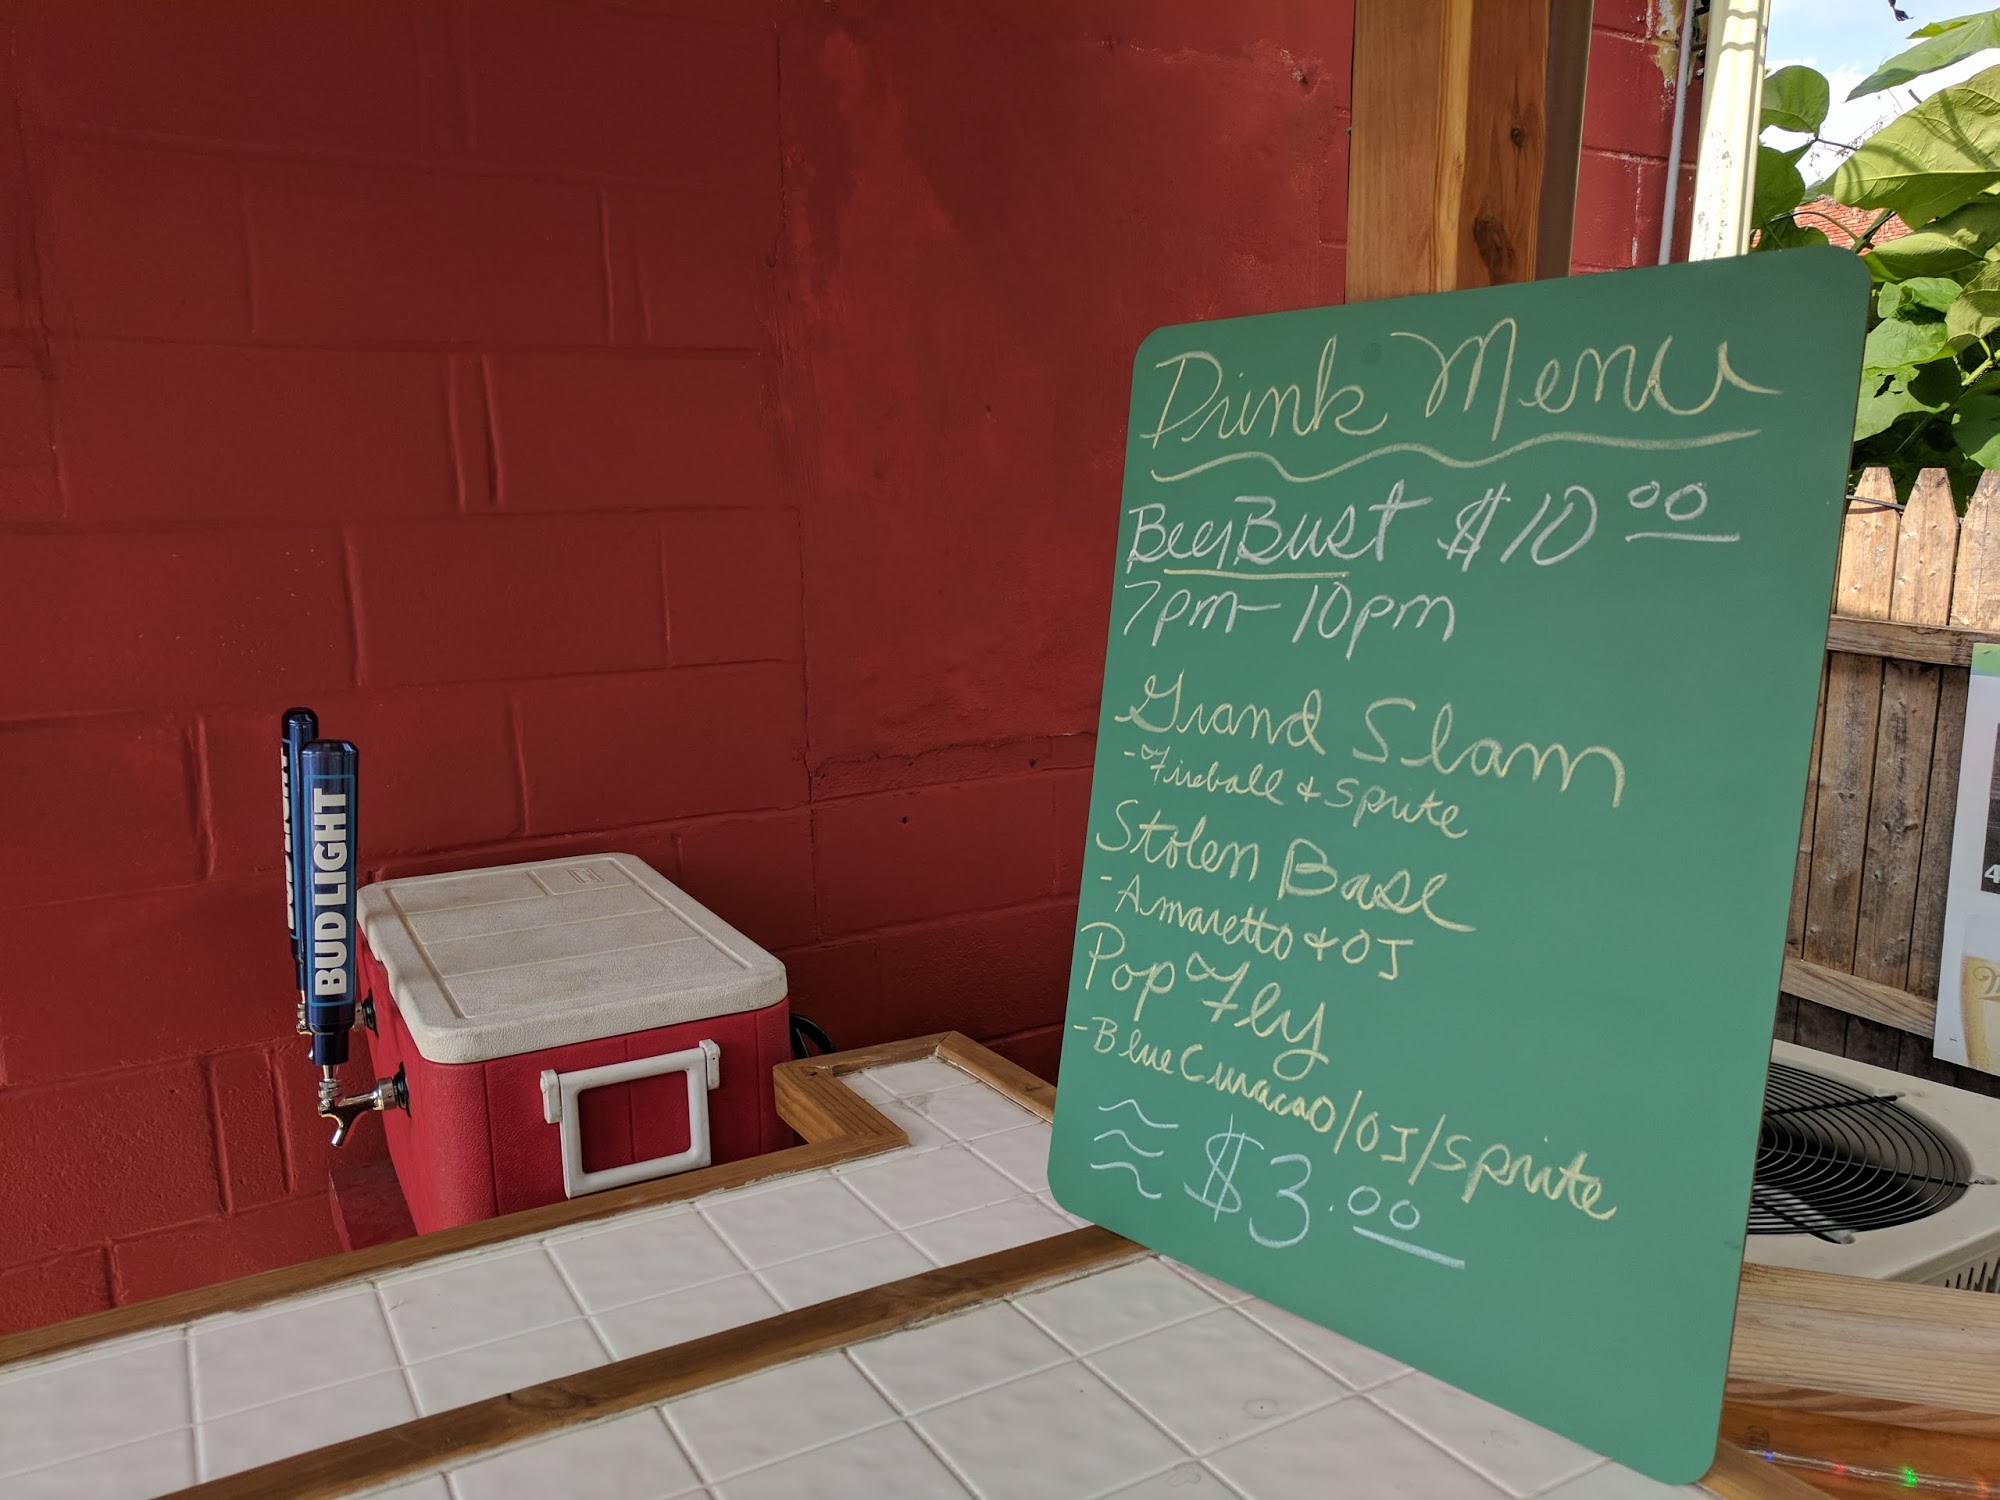 Drink Menu
Beer Bust $10 00
7pm - 10pm
Grand Slam
- Fireball + Sprite
Stolen Base
- Amaretto + OJ
Pop Fly
- Blue Curacao/OJ/Sprite
$3.00
BUD LIGHT